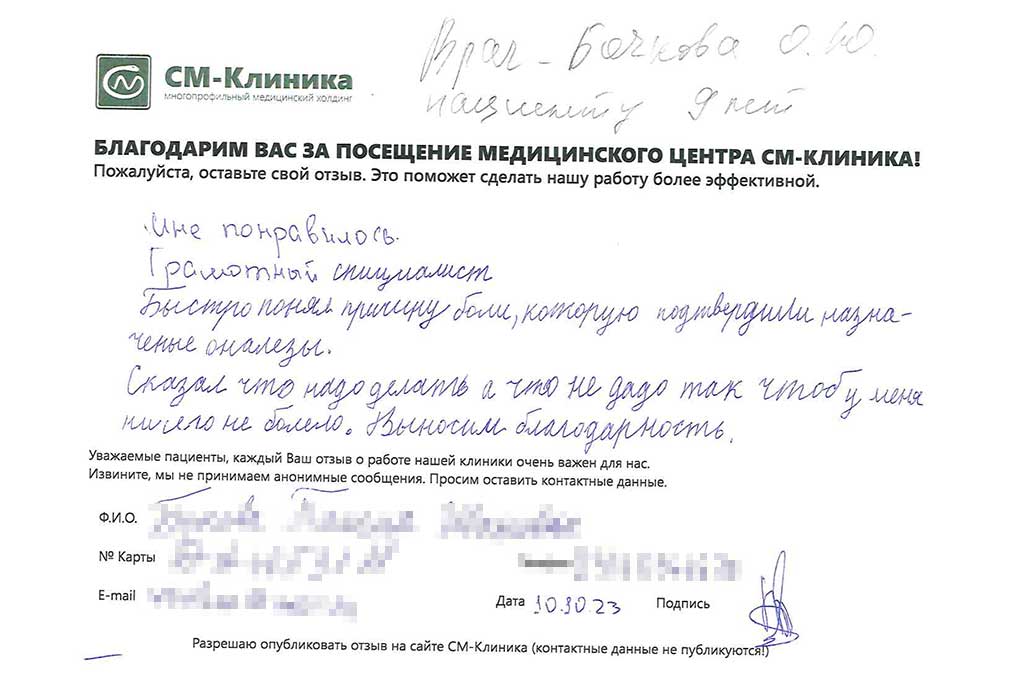 Врач - Бачкова О.Ю.
пациенту 9 лет
СМ-Клиника
МНОГОПРОФИЛЬНЫЙ МЕДИЦИНСКИЙ ХОЛДИНГ
БЛАГОДАРИМ ВАС ЗА ПОСЕЩЕНИЕ МЕДИЦИНСКОГО ЦЕНТРА СМ-КЛИНИКА!
Пожалуйста, оставьте свой отзыв. Это поможет сделать нашу работу более эффективной.
Мне понравилось.
Грамотный спициалист
Быстро понял причину боли, которую подтвердили назна-
ченые анализы.
Сказал что надо делать а что не дадо так чтоб у меня
ничего не болело. Выносим благодарность.
Уважаемые пациенты, каждый Ваш отзыв о работе нашей клиники очень важен для нас.
Извините, мы не принимаем анонимные сообщения. Просим оставить контактные данные.
Ф.И.О.
№ Карты
E-mail
Дата 10.10.23 Подпись
Разрешаю опубликовать отзыв на сайте СМ-Клиника (контактные данные не публикуются!)